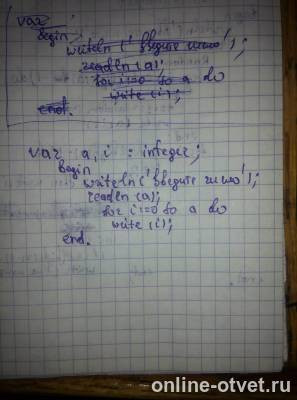 var
begin
writeln('введите число');
readln(a);
for i:=0 to a do
write(i);
end.
var a, i : integer;
begin
writeln('введите число');
readln(a);
for i:=0 to a do
write(i);
end.
online-otvet.ru